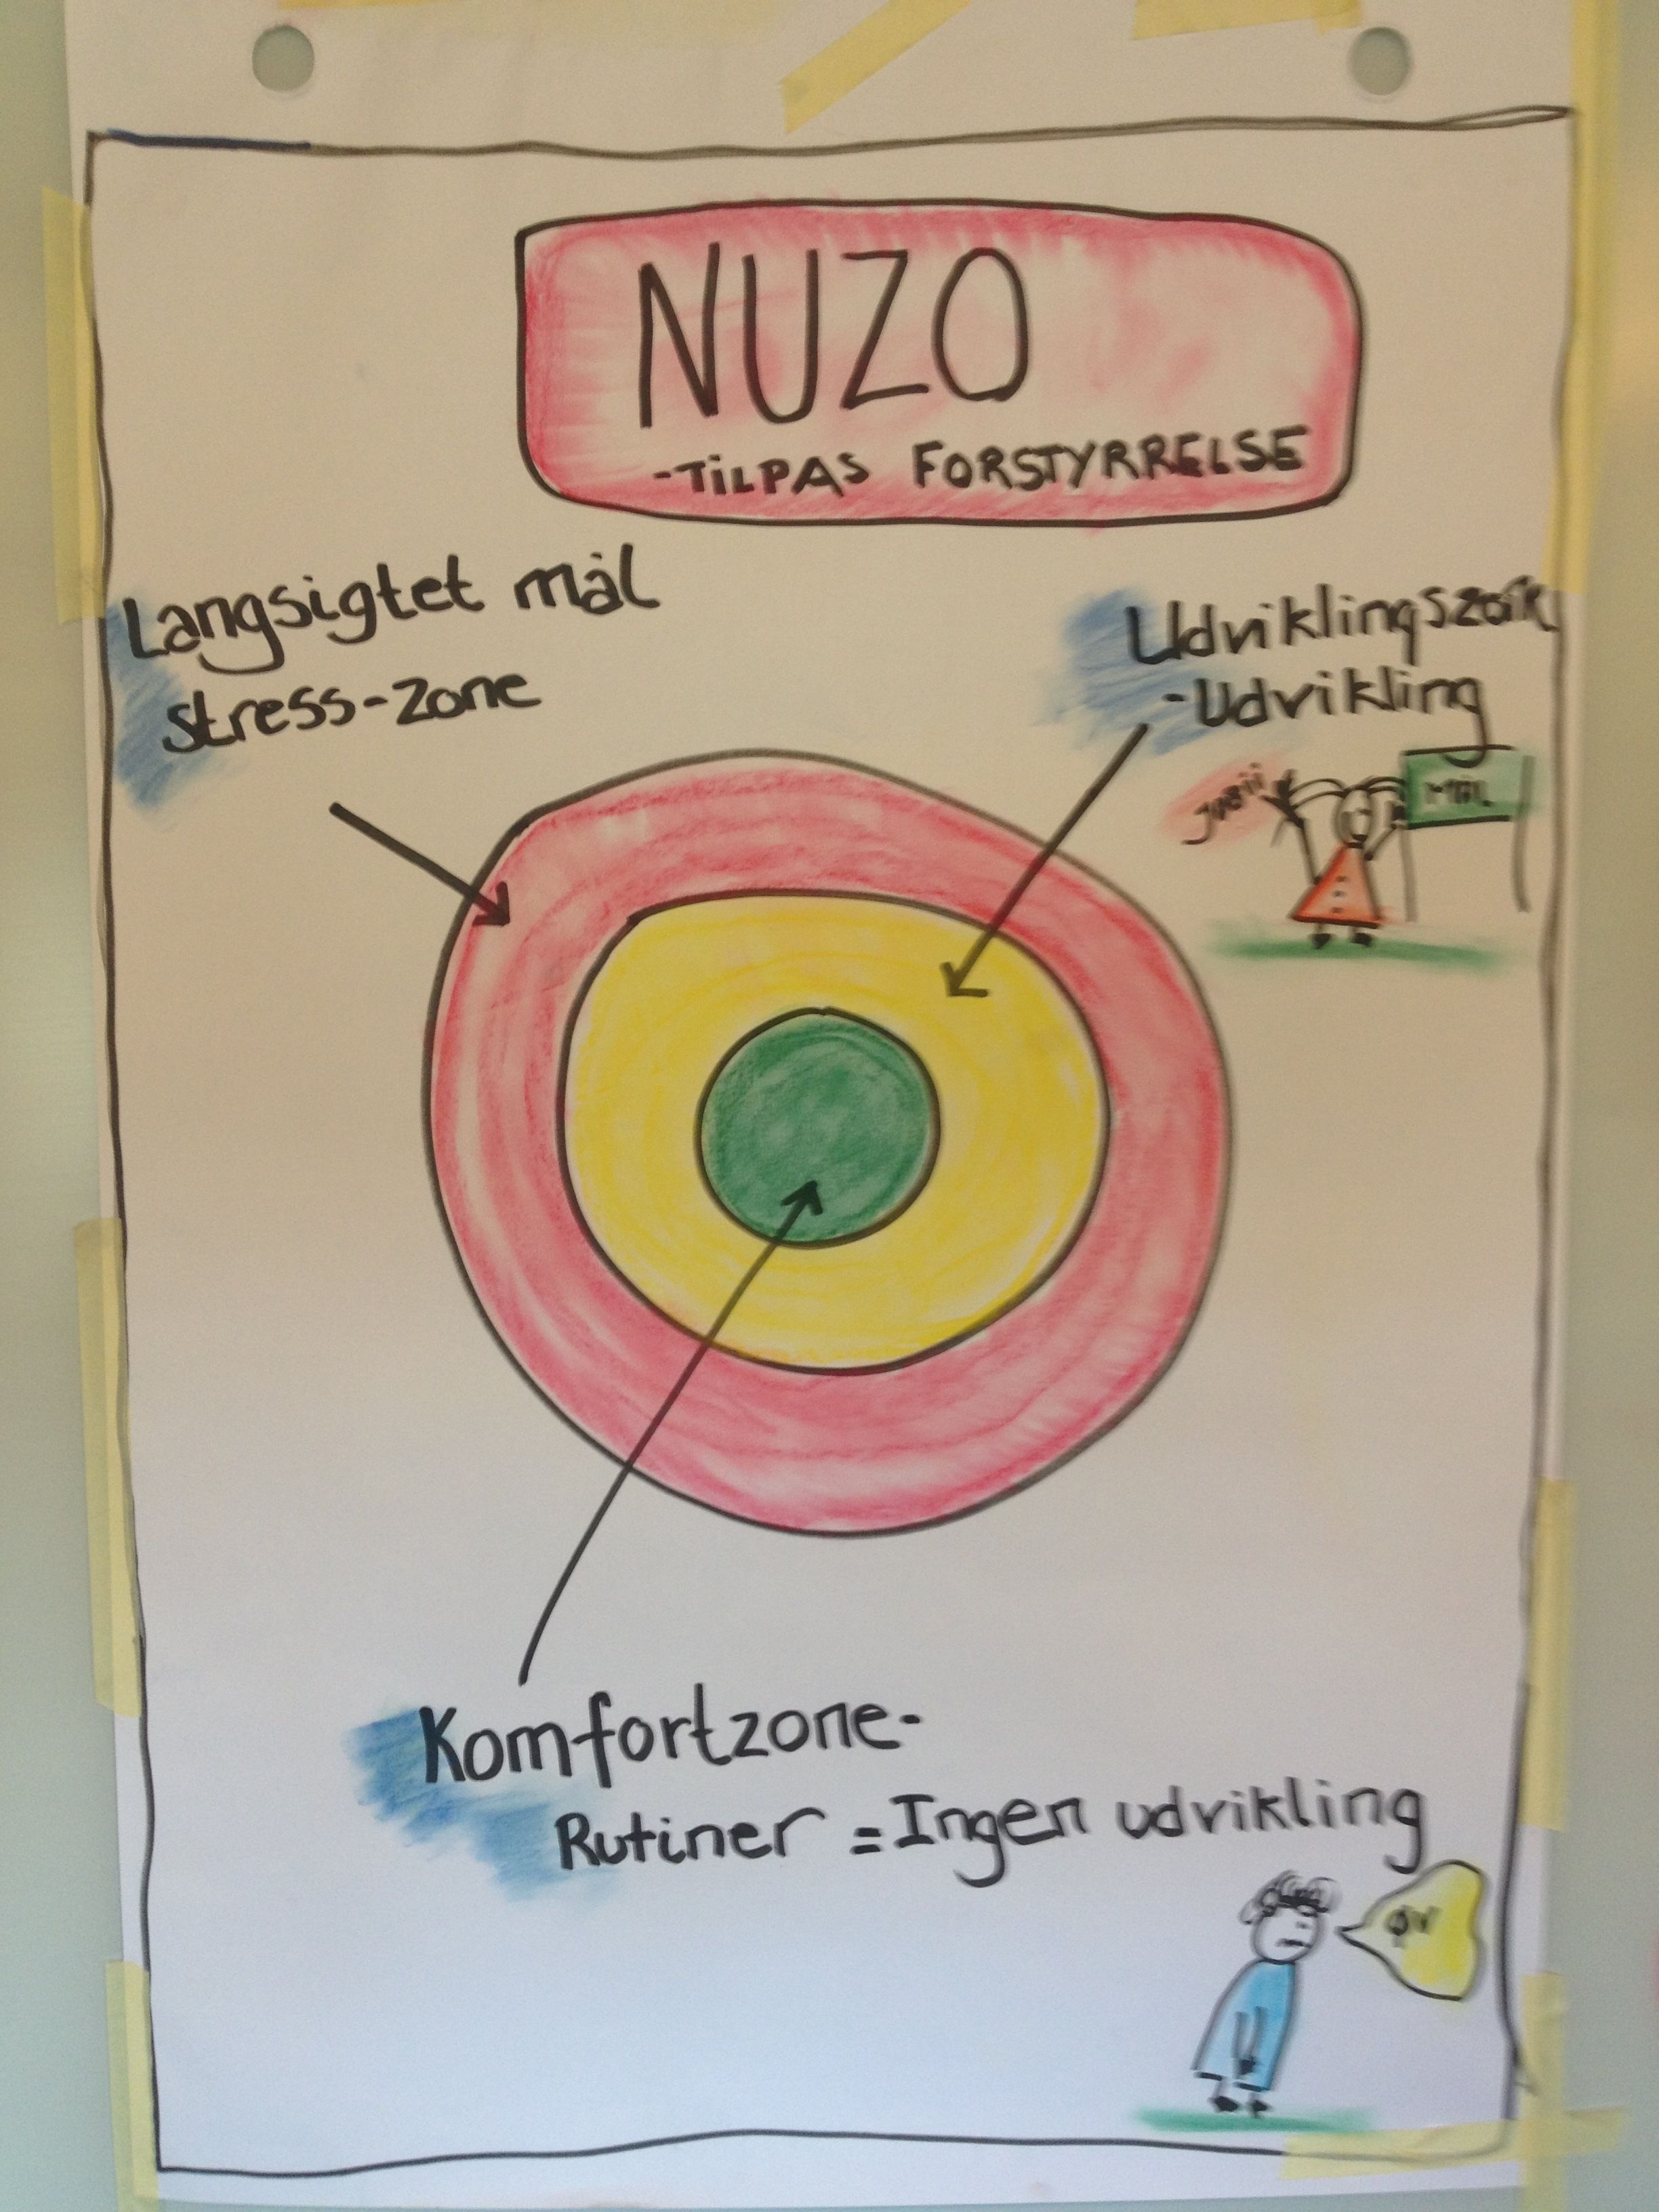 NUZO
-TILPAS FORSTYRRELSE
Langsigtet mål
stress-zone
Udviklingszone
-Udvikling
MÅL
Komfortzone-
Rutiner = Ingen udvikling
ØV